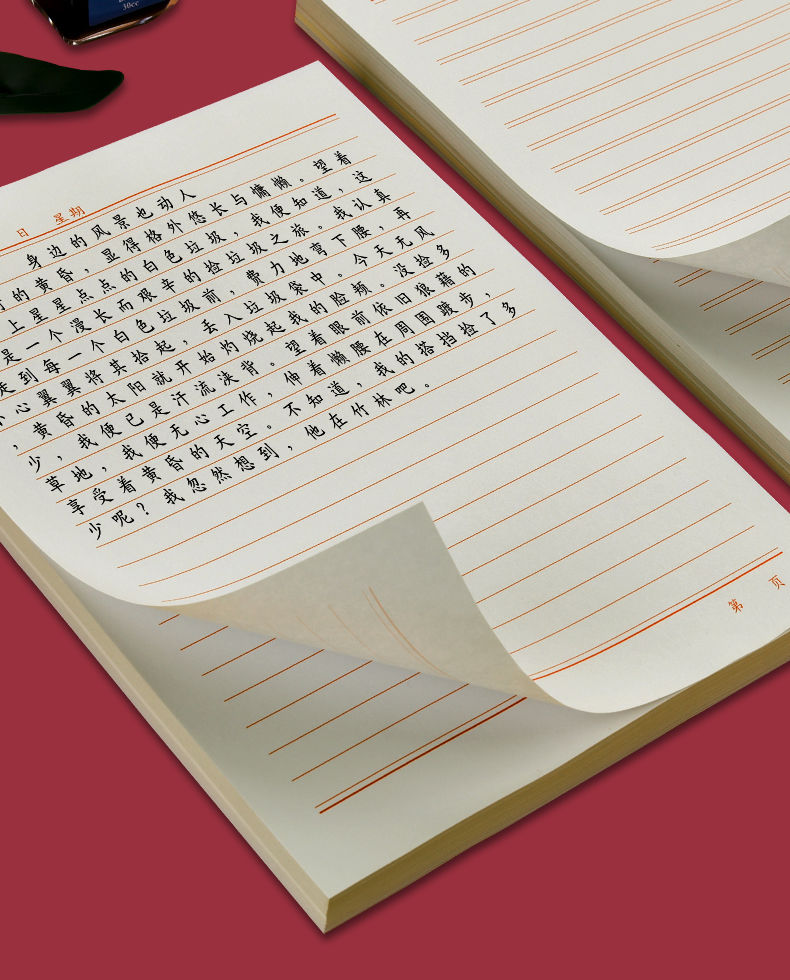 30cc
日 星期
身边的风景也动人
的黄昏，显得格外悠长与慵懒。望着
上星星点点的白色垃圾，我便知道，这
是一个漫长而艰辛的捡垃圾之旅。我认真
走到每一个白色垃圾前，费力地弯下腰，再
小心翼翼将其拾起，丢入垃圾袋中。今天无风
，黄昏的太阳就开始灼烧起我的脸颊。没捡多
少，我便已是汗流浃背。望着眼前依旧狼藉的
草地，我便无心工作，伸着懒腰在周围踱步，
享受着黄昏的天空。不知道，我的搭挡捡了多
少呢？我忽然想到，他在竹林吧。
第 页